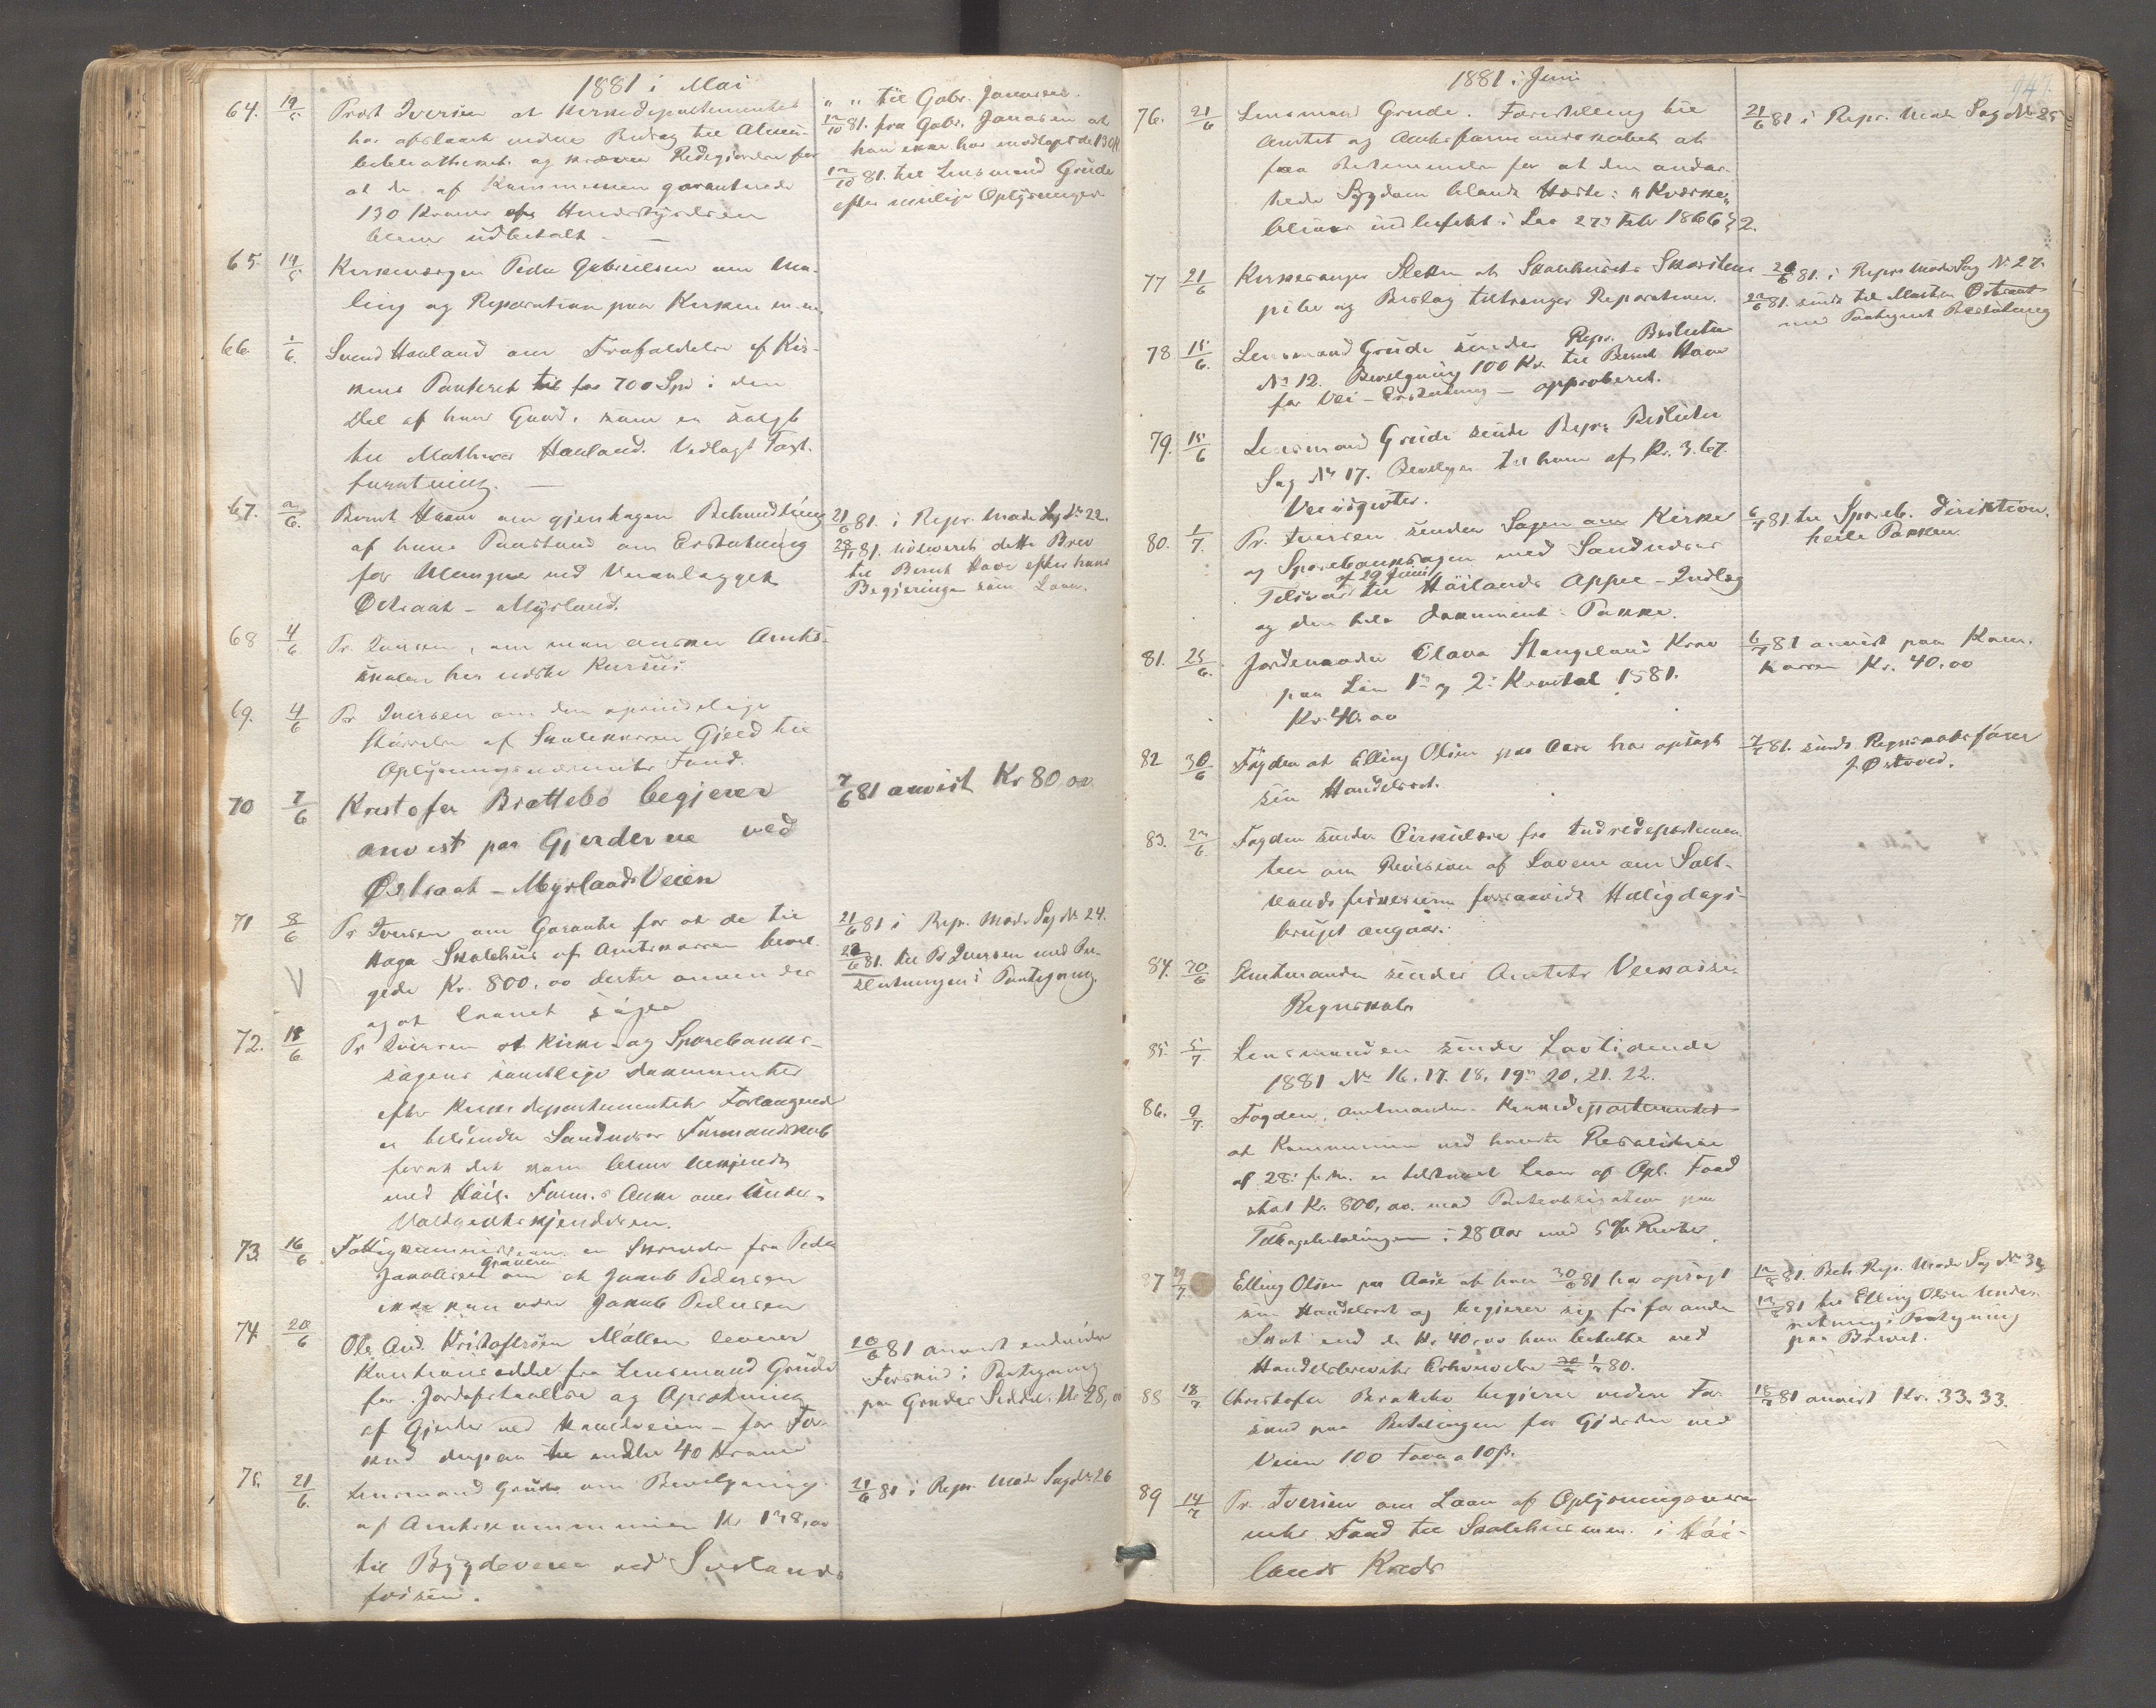 1881 i Mai
64. 19/5 Prost Iversen at Kirkedepartementet
har afslaaet videre Bidrag til Almue-
bibliotheket og kræver Redegjørelse for
at de af Kommunen garanterede
130 Kroner
bliver udbetalt.
" " til Gabr. Jonassen.
12/10 81. fra Gabr. Jonasen at
han ikke har modtaget de 130 Kr
12/10 81. til Lensmand Grude
efter mulige Oplysninger.
65. 19/5 Kirkeværgen Peder Gabrielsen om Ma-
ling og Reparation paa Kirken m.m.
66. 1/6. Svend Hauland om Frafaldelse af Kir-
kens Panteret til for 700 Spd i den
Del af hans Gaard, som er solgt
til Mathias Hauland. Vedlagt Taxt.
forretning.
67. 2/6. Bernt Haave om gjentagen Behandling
af hans Paastand om Erstatning
for Ulemper ved Veianlægget
Østraat - Myrland.
21/6 81. i Repr. Møde Sag No 22.
28/11 81. udleveret dette Brev
til Bernt Haave efter hans
Begjering som Laan.
68 4/6 Pr. Iversen, om man ønsker Amts-
skolen her næste Kursus.
69. 4/6 Pr Iversen om den oprindelige
Størrelse af Skolekassens Gjeld til
Oplysningsvæsenets Fond.
70 7/6 Kristofer Brattebø begjerer
anvist paa Gjerderne ved
Østraat - Myrlands Veien
7/6 81 anvist Kr 80,00.
71 8/6 Pr Iversen om Garanti for at de til
Haga Skolehus af Amtskassen bevil-
gede Kr. 800,00 dertil anvendes
og at Laanet søges
21/6 81 i Rep. Møde Sag No 24.
6 81. til Pr Iversen med Be-
slutningen i Paategning.
72. 18/6. Pr Iversen at Kirke- og Sparebanks-
sagens samtlige Dokumenter
efter Kirkedepartementets Forlangende
er tilsendte Sandnæs Formandskab
forat det kan blive bekjendt
med Høil. Form.s Anke over Under-
Voldgiftskjendelsen.
73. 16/6 Fattigkommissionen en Skrivelse fra Peder
Jakobsen Graveren om at Jakob Pedersen
ikke kan være Jakob Pedersen
74. 20/6 Ole And. Kristofersen Møllen leverer
Kautionsseddel fra Lensmand Grude
for Jordafstaaelse og Opsætning
af Gjerder ved Hanaveien - for For-
skud derpaa til endel 40 Kroner
20/6 81 anvist endvidere
Forskud i Paategning
paa Grudes Seddel. Kr 28,00
75. 21/6. Lensmand Grude om Bevilgning
af Amtskommunen Kr 178,00
til Bygdeveien ved Svilands
fossen.
21/6 81 i Repr. Møde Sag No 26
1881 i Juni
76. 21/6 Lensmand Grude. Forestilling til
Amtet og Amtsformandskabet at
faa Bestemmelse for at den ondar-
tede Sygdom blandt Heste: "Kværke"
bliver indbefattet i Lov 27de Febr 1866 § 2.
21/6 81 i Repr. Møde Sag No 25
77 21/6 Kirkesanger Sleken at Skolehusets Skorstens
pibe og Beslag tiltrænger Reparation.
6 81. i Repr. Møde Sag No 27.
6 81. sendt til Morten Østraat
med Paategnet Beslutning
78 15/6. Lensmand Grude sender Repr. Beslutn.
No 12. Bevilgning 100 Kr. til Bernt Haave
for Vei-Erstatning - approberet.
79. 15/6 Lensmand Grude sender Repr. Beslutn.
Sag No 17. Bevilgn. til ham af Kr. 3.67.
Veiudgifter.
80. 1/7. Pr. Iversen sender Sagen om Kirke
og Sparebanksagen med Sandnæses
Tilsvar af 29 Juni til Høilands Appel-Indlæg
og den hele Dokument-Pakke.
6/7 81 til Spareb. Direktion.
hele Pakken.
81. 25/6. Jordemoder Olava Stangeland Krav
paa Løn 1ste og 2det Kvartal 1881.
Kr. 40.00
6/7 81 anvist paa Kom.
kassen Kr. 40,00
82 30/6 Fogden at Elling Olsen paa Aase har opsagt
sin Handelsret.
7/7 81. sendt Regnskabsfører
J. Østrved.
83. 27/6. Fogden sender Cirkulære fra Indredepartemen-
tet om Revision af Lovene om Salt-
vandsfiskerierne forsaavidt Helligdags-
bruget angaar.
84. 30/6 Amtmanden sender Amtets Veikasse-
Regnskab
85. 5/7 Lensmanden sender Lovtidende
1881 No 16. 17. 18. 19. 20. 21. 22.
86. 9/7. Fogden, Amtmanden. Kirkedepartementet
at Kommunen ved høieste Resolution
af 28de f.M. er tilstaaet Laan af Opl. Fond
stort Kr. 800,00. mod Panteobligation paa
Tilbagebetalingen i 28 Aar med 5 % Renter.
87 29/7 Elling Olsen paa Aase at han 30/6 81 har opsagt
sin Handelsret og begjerer sig fri for anden
Skat end de Kr 40,00 han betalte ved
Handelsbrevets Erhvervelse 1/7 80.
12/8 81. Beh. Rep. Møde Sag No 33
12/8 81 til Elling Olsen Under-
retning i Paategning
paa Brevet.
88 18/7 Christofer Brattebø begjerer videre For
skud paa Betalingen for Gjerder ved
Veien 100 Favn a 10 ß.
18/7 81 anvist Kr. 33.33.
89 14/7 Pr. Iversen om Laan af Oplysningsvæse
nets Fond til Skolehusene i Høi-
lands Kreds